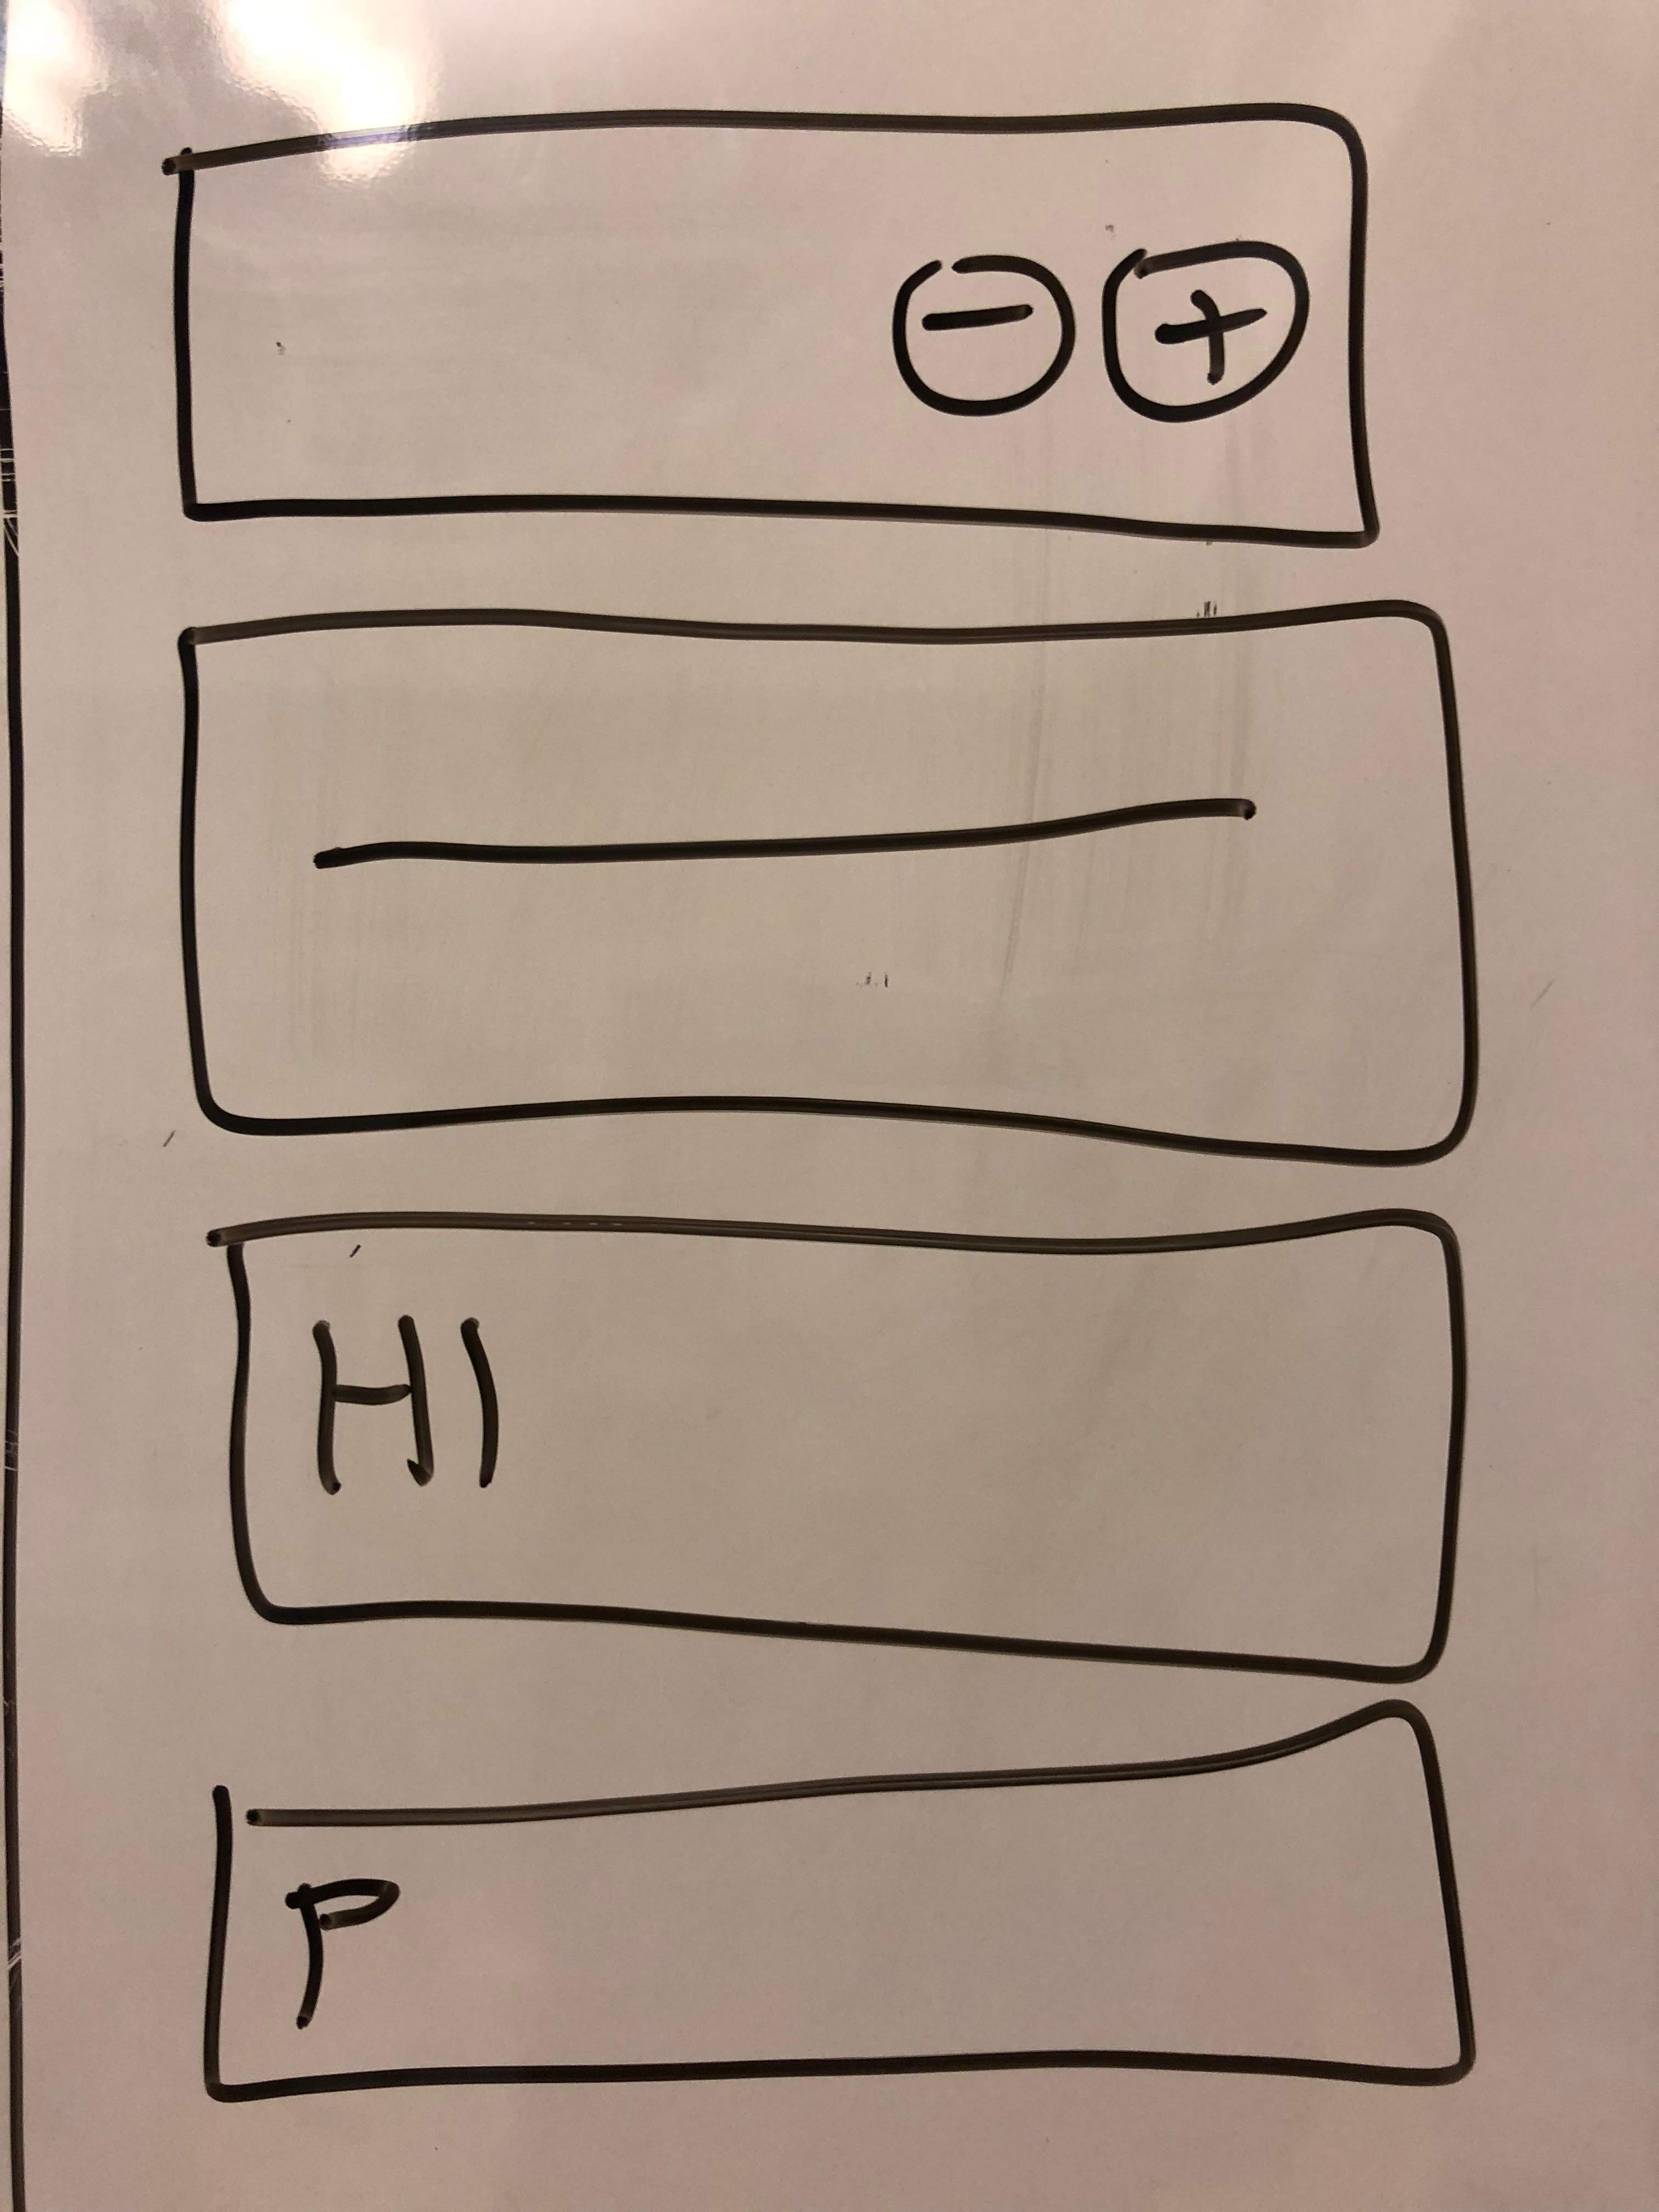 - +
HI
P